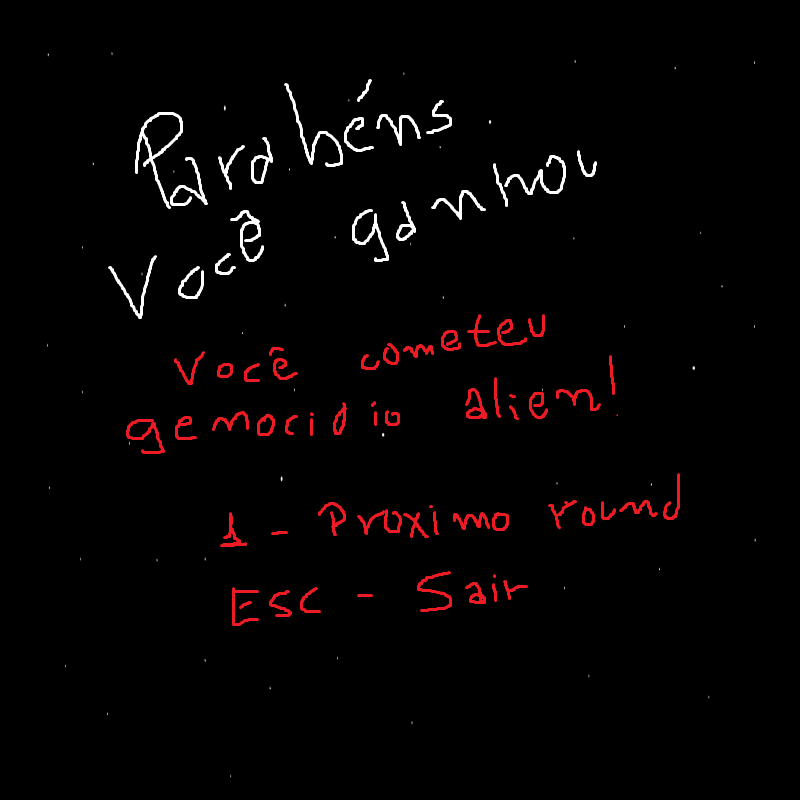 Parabéns
Você ganhou
Você cometeu
genocidio alien!
1 - Proximo round
ESC - Sair